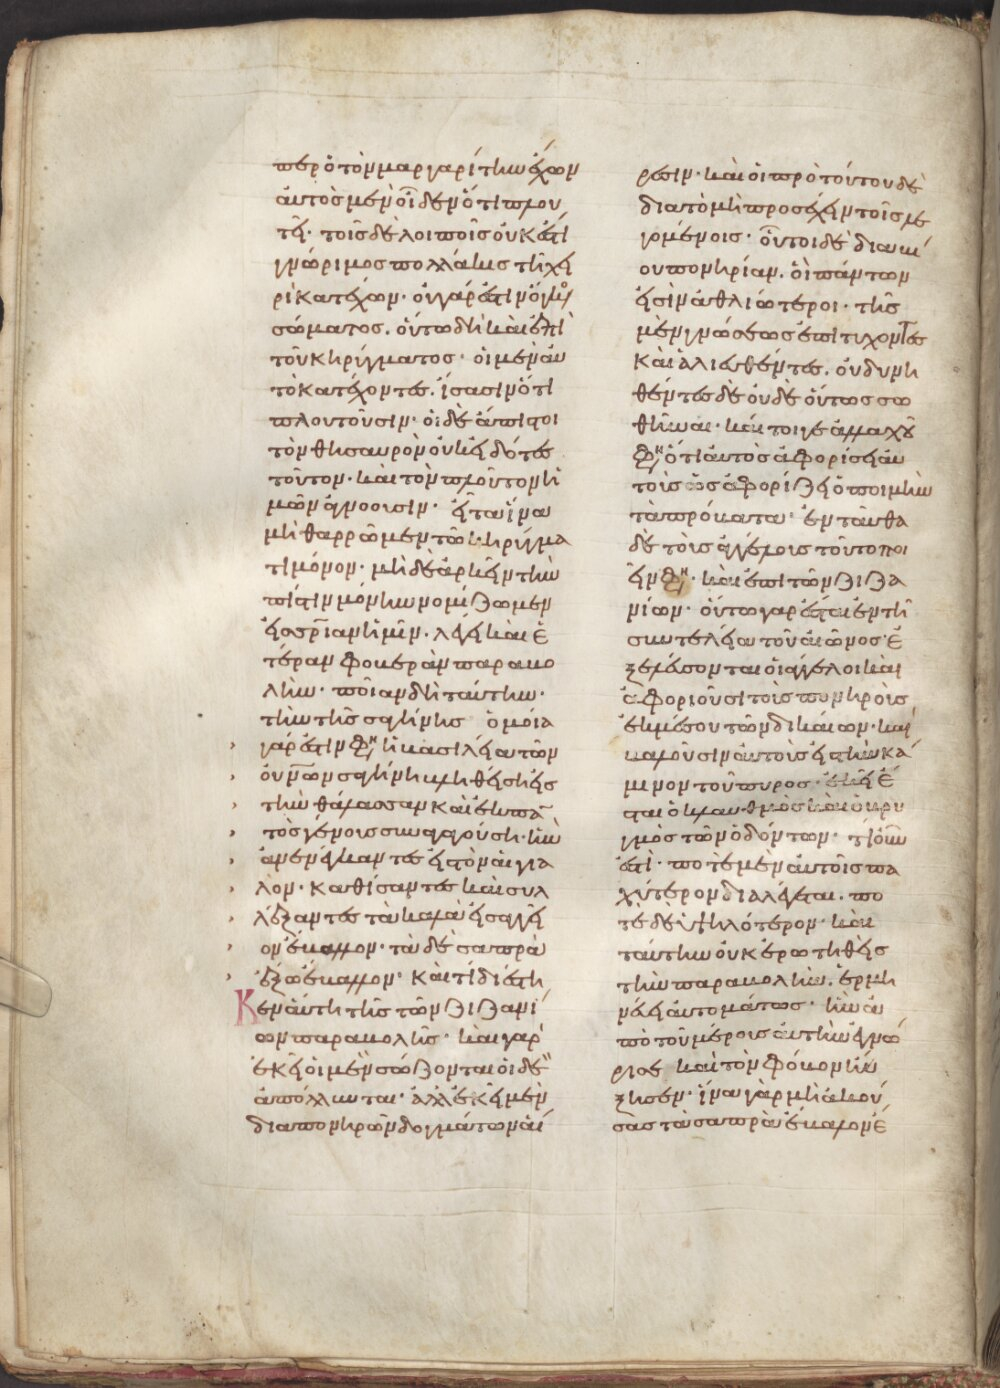 περ ὁ τὸν μαργαρίτην ἔχων
αὐτὸς μὲν οἶδεν ὅτι πλου
τεῖ· τοῖς δὲ λοιποῖς οὐκ ἔστι
γνώριμος πολλάκις τῆ χει
ρὶ κατέχων· οὐ γάρ ἐστιν ὄγκος
σώματος. οὕτω δὴ καὶ ἐπὶ
τοῦ κηρύγματος· οἱ μὲν αὐ
τὸ κατέχοντες. ἴσασιν ὅτι
πλουτοῦσιν· οἱ δὲ ἄπιστοι
τὸν θησαυρὸν οὐκ εἰδότες
τοῦτον· καὶ τὸν πλοῦτον ἡ
μῶν ἀγνοοῦσιν· εἶτα ἵνα
μὴ θαρρῶμεν τῶ κηρύγμα
τι μόνον· μὴ δὲ ἀρκεῖν τὴν
πίστιν μόνην νομίζωμεν
εἰς σρίαν ἡμῖν. λέγει καὶ ἑ
τέραν φοβερὰν παραβο
λήν· ποίαν δὴ ταύτην·
τὴν τῆς σαγήνης ὁμοία
γάρ ἐστιν φη ἡ βασιλεία τῶν
οὐνῶν σαγήνη βληθείση εἰς
τὴν θάλασσαν καὶ ἐκ πα
τὸς γένους συναγαγούση· ἣν
ἀνενέγκαντες εἰς τὸν αἰγια
λὸν· καθίσαντες καὶ συλ
λέξαντες τὰ καλὰ εἰς ἀγγεῖ
ον ἔβαλλον· τὰ δὲ σαπρὰ
ἔξω ἔβαλλον· καὶ τί διέστη
κεν αὕτη τῆς τῶν ζιζανί
ων παραβολῆς· καὶ γὰρ
ἐκεῖ οἱ μὲν σώζονται οἱ δὲ
ἀπόλλυνται· ἀλλ' ἐκεῖ μὲν
διὰ πονηρῶν δογμάτων αἵ
ρεσιν· καὶ οἱ πρὸ τούτου δὲ
διὰ τὸ μὴ προσέχειν τοῖς λε
γομένοις· οὗτοι δὲ διὰ βί
ου πονηρίαν. οἳ πάντων
εἰσὶν ἀθλιώτεροι· τῆς
μὲν γνώσεως ἐπιτυχόντες
καὶ ἁλιευθέντες. οὐ δυνη
θέντες δὲ οὐδὲ οὕτως σω
θῆναι· καίτοιγε ἀλλαχοῦ
φη ὅτι αὐτὸς ἀφορίσει αὐ
τοὺς ὡς ἀφορίζει ὁ ποιμὴν
τὰ πρόβατα· ἐνταῦθα
δὲ τοὺς ἀγγέλους τοῦτο ποι
εῖν φη· καὶ ἐπὶ τῶν ζιζα
νίων· οὕτω γὰρ ἔσται ἐν τῆ
συντελεία τοῦ αἰῶνος· ἐ
ξελεύσονται οἱ ἄγγελοι καὶ
ἀφοριοῦσι τοὺς πονηροὺς
ἐκ μέσου τῶν δικαίων· καὶ
βαλοῦσιν αὐτοὺς εἰς τὴν κά
μινον τοῦ πυρος· ἐκεῖ ἔ
σται ὁ κλαυθμὸς καὶ ὁ βρυ
γμὸς τῶν ὀδόντων· τί οὖν
ἐστί· ποτὲ μὲν αὐτοῖς πα
χύτερον διαλέγεται. πο
τὲ δὲ ὑψηλότερον· καὶ
ταύτην οὐκ ἐρωτηθεὶς
τὴν παραβολὴν. ἑρμη
νεύει αὐτομάτως· ἣν ἀ
πὸ τοῦ μέρους αὐτὴν ἐγνώ
ρισε καὶ τὸν φόβον ηὔ
ξησεν· ἵνα γὰρ μὴ ἀκού
σας τὰ σαπρὰ ἔβαλον ἔ